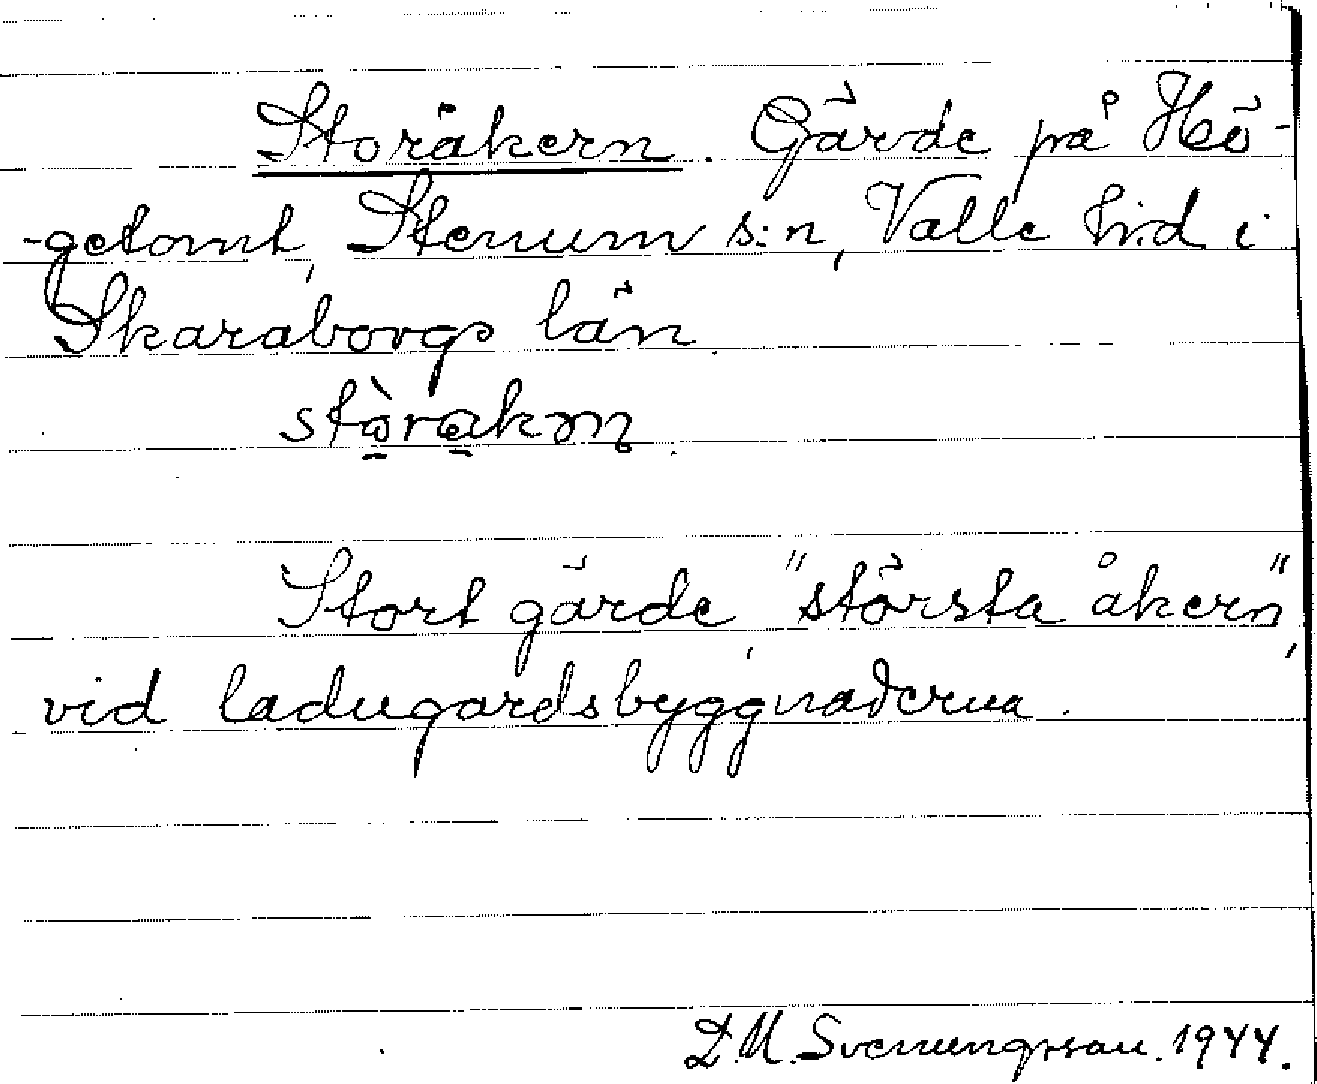 Storåkern. Gärde på Hö-
-getomt, Stenum s:n, Valle h:d i
Skaraborgs län.
stòrakɷn.
Stort gärde, "största åkern",
vid ladugårdsbyggnaderna.
D.M. Svenungsson. 1944.